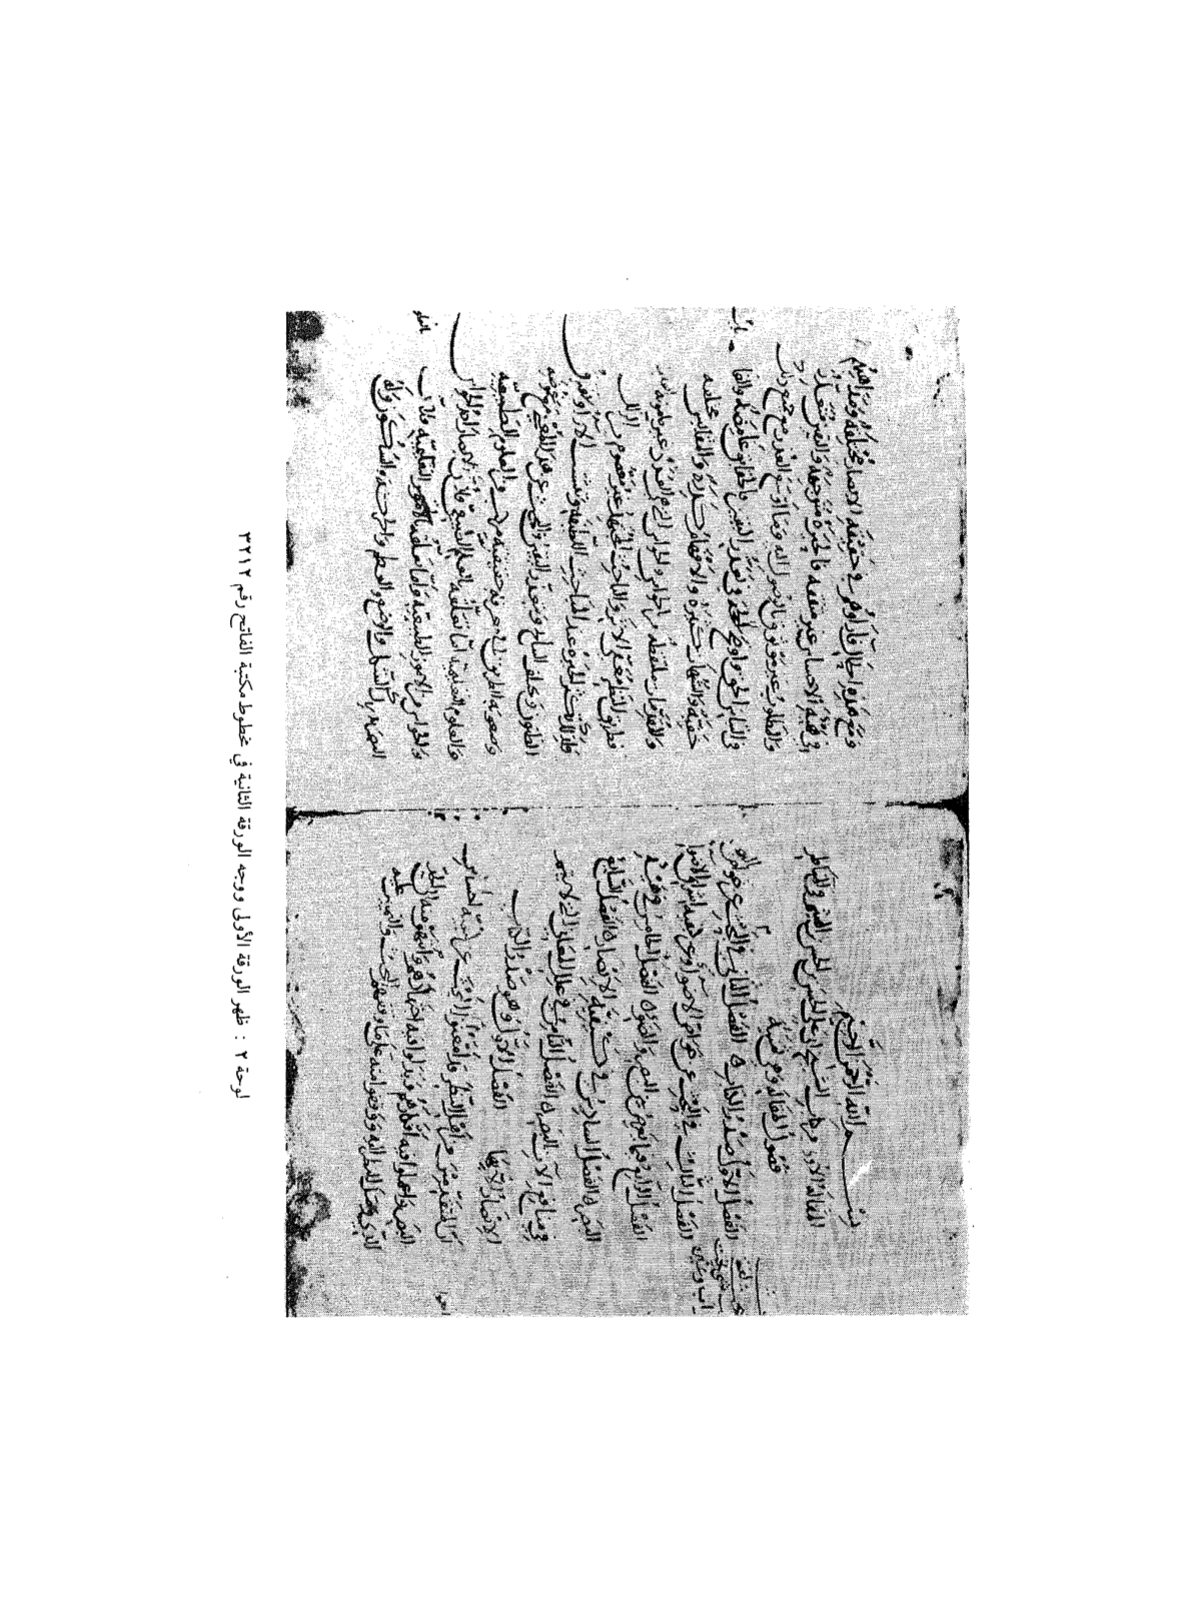 بسم الله الرحمن الرحيم
المقالة الأولى من كتاب الشيخ أبي علي الحسن بن الحسن بن الهيثم في المناظر
فصول المقالة وهي ثمانية
الفصل الأول صدر الكتاب الفصل الثاني في البحث عن خواص البصر
الفصل الثالث في البحث عن خواص الأضواء وعن كيفية إشراق الأضواء
الفصل الرابع فيما يعرض بين البصر والضوء الفصل الخامس في هيئة
البصر الفصل السادس في كيفية الإبصار الفصل السابع
في منافع آلات البصر الفصل الثامن في علل المعاني التي لا يتم
الإبصار إلا بها الفصل الأول وهو صدر الكتاب
إن المتقدمين من أهل النظر قد أمعنوا البحث عن كيفية إحساس
البصر وأعملوا فيه أفكارهم وبذلوا فيه اجتهادهم وانتهوا منه إلى الحد
الذي وصل النظر إليه ووقفوا منه على ما وقفهم البحث والتمييز عليه
ومع هذه الحال فآراؤهم في حقيقة الإبصار مختلفة ومذاهبهم
في هيئة الإحساس غير متفقة فالحيرة متوجهة واليقين متعذر
والمطلوب غير موثوق بالوصول إليه وما أوسع العذر مع جميع ذلك
في التباس الحق وأوضح الحجة في تعذر اليقين فالحقائق غامضة والغايات
خفية والشبهات كثيرة والأفهام كدرة والمقاييس مختلفة
والمقدمات ملتقطة من الحواس والحواس التي هي العدد غير مأمونة
فطريق النظر معفى الأثر والباحث المجتهد غير معصوم من الزلل
فلذلك تكثر الحيرة عند المباحث اللطيفة وتتشتت الآراء وتفترق
الظنون وتختلف النتائج ويتعذر اليقين والبحث عن هذا المعنى مع غموضه
وصعوبة الطريق إلى معرفة حقيقته مركب من العلوم الطبيعية
والعلوم التعليمية أما تعلقه بالعلم الطبيعي فلأن الإبصار أحد الحواس
والحواس من الأمور الطبيعية وأما تعلقه بالعلوم التعليمية فلأن
البصر يدرك الشكل والوضع والعظم والحركة والسكون وله
لوحة ٢ : ظهر الورقة الأولى ووجه الورقة الثانية في مخطوط مكتبة الفاتح رقم ٣٢١٢